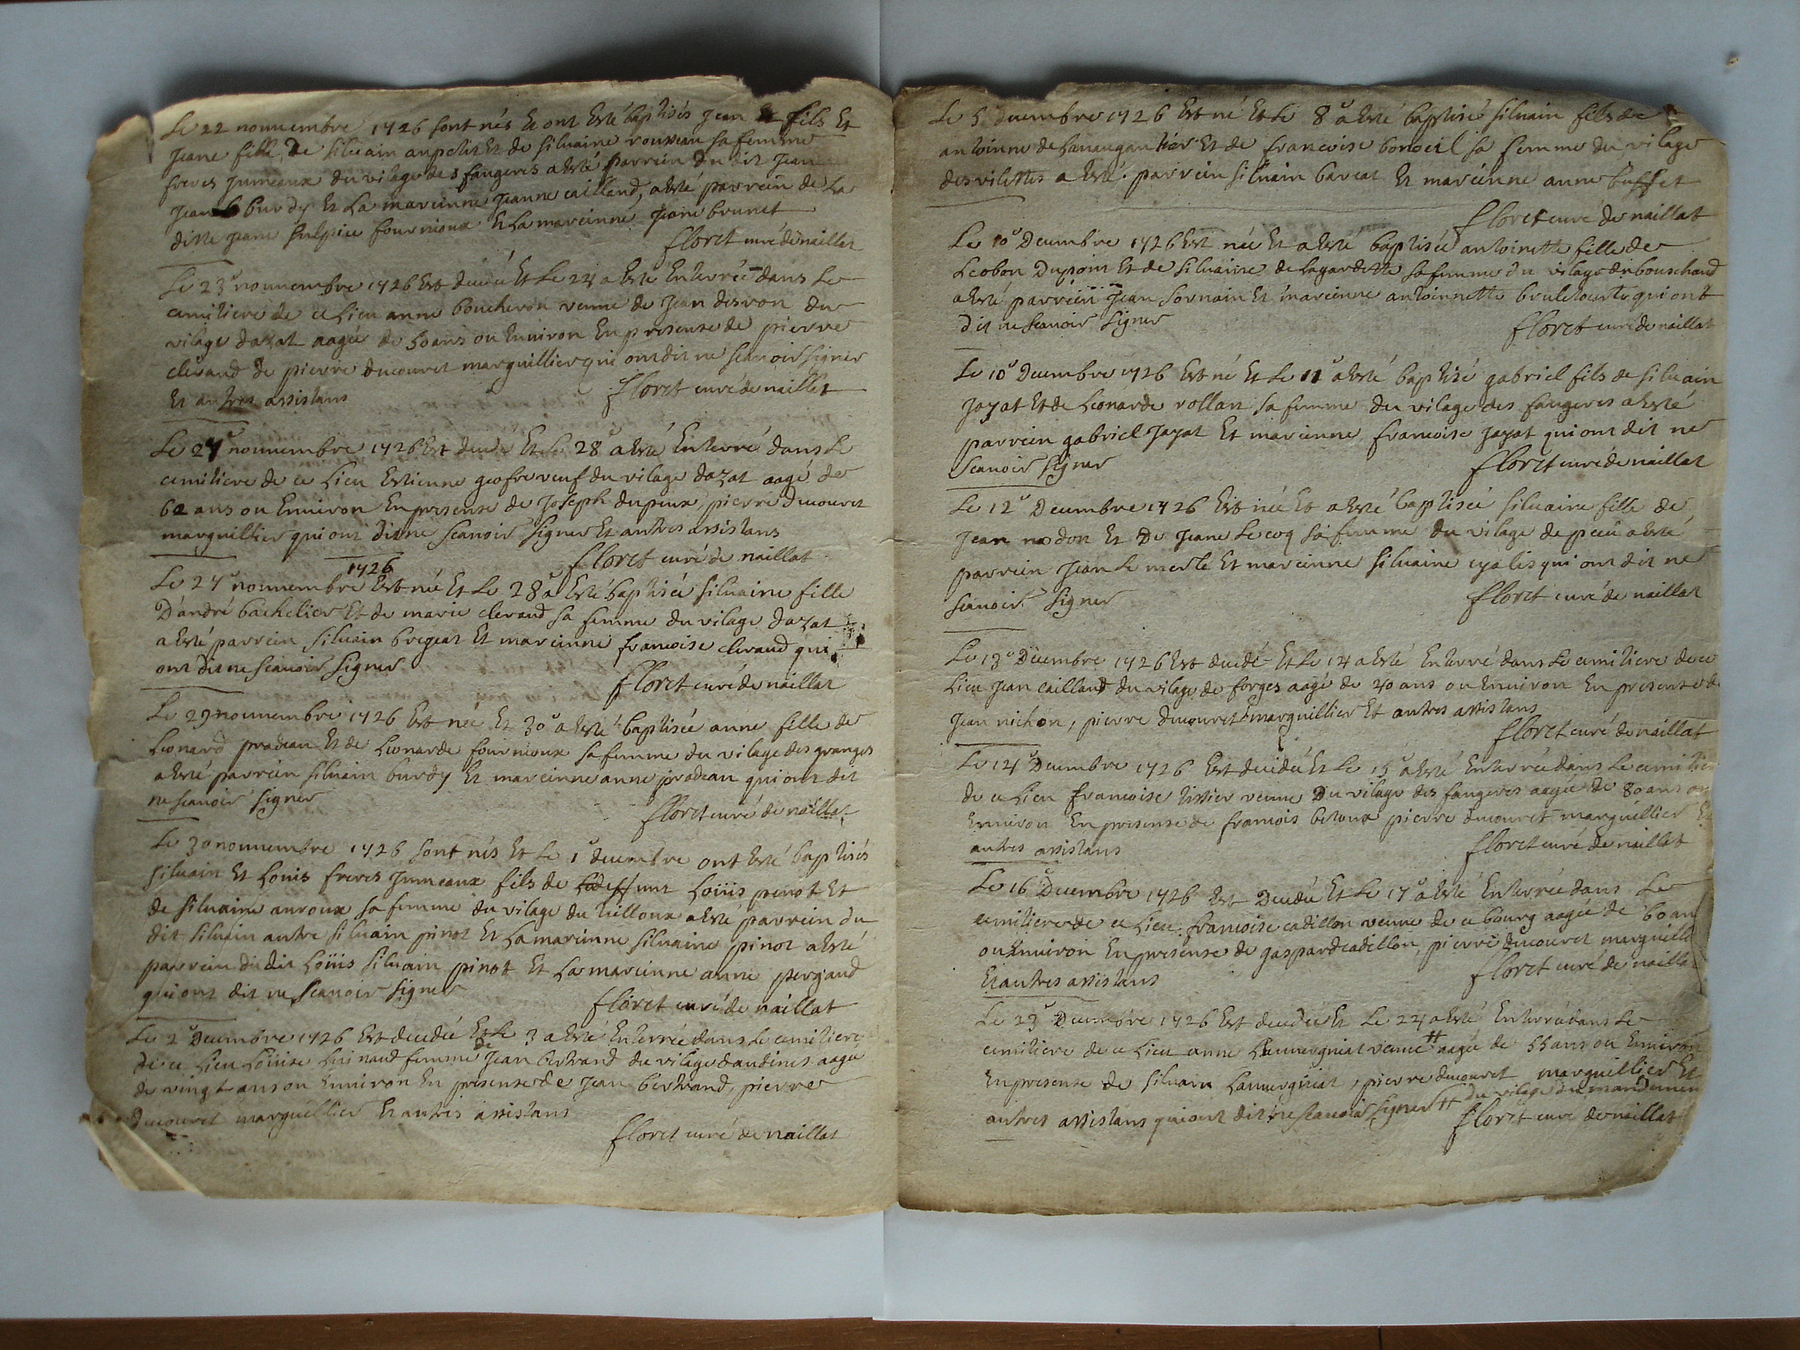 Le 22 nouuembre 1726 sont nés Et ont Esté baptisés Jean fils Et
Jeane fille De siluain aupetit Et de siluaine rouueau sa femme
freres Jumeaux du vilage des faugeres a Esté parrein du dit Jean
Jean burdy Et La mareinne Jeanne caillaud, a Esté parrein de La
ditte Jeane sulpice fournioux Et La mareinne Jeane brunet
floret curé de naillat
Le 23e nouuembre 1726 Est decedé Et Le 24 a Esté Enterrée dans Le
cimitiere de ce Lieu anne boucheron veuue de Jean desvon du
vilage dazat aagée de 50 ans ou Enuiron En presense de pierre
cleraud De pierre ducouret marguillier qui ont dit ne scauoir signer
Et autres assistans
floret curé de naillat
Le 27e nouuembre 1726 Est decedé Et Le 28e a Esté Enterré dans Le
cimitiere de ce Lieu Estienne geofre veuf du vilage dazat aagé de
62 ans ou Enuiron En presense de Joseph dupeux, pierre Ducouret
marguillier qui ont dit ne scauoir signer Et autres assistans
floret curé de naillat
1726
Le 27e nouuembre Est née Et Le 28e a Esté baptisée siluaine fille
D'andré bachelier Et de marie cleraud sa femme du vilage dazat
a Esté parrein siluain bregeat Et mareinne francoise cleraud qui
ont dit ne scauoir signer
floret curé de naillat
Le 29 nouuembre 1726 Est née Et 30e a Esté baptisée anne fille de
Leonard pradeau Et de Leonarde fournioux sa femme du vilage des granges
a Esté parrein siluain burdy Et mareinne anne pradeau qui ont dit
ne scauoir signer
floret curé de naillat
Le 30 nouuembre 1726 sont nés Et Le 1e decembre ont Esté baptisés
siluain Et Loüis freres Jumeaux fils de feu Loüis pinot Et
de siluaine auroux sa femme du vilage du tilloux a Esté parrein du
dit siluain autre siluain pinot Et La mareinne siluaine pinot a Esté
parrein du dit Loüis siluain pinot Et La mareinne anne perjaud
qui ont dit ne scauoir signer
floret curé de naillat
Le 2e Decembre 1726 Est decedée Et Le 3 a Esté Enterrée dans Le cimitiere
de ce Lieu Loüise Luinaud femme de Jean bertrand du vilage daudines aagée
de vingt ans ou Enuiron En presense de Jean bertrand, pierre
Ducouret marguillier Et autres assistans
floret curé de naillat
Le 5e Decembre 1726 Est né Et Le 8e a Esté baptisé siluain fils de
antoinne de Lanaugautier Et de francoise bonoeil sa femme du vilage
des vilettes a Esté parrein siluain barcat Et mareinne anne buffet
floret curé de naillat
Le 10e Decembre 1726 Est née Et a Esté baptisée antoinette fille de
Leobon Dupoint Et de siluaine de Lagardette sa femme du vilage du bouschaud
a Esté parrein Jean sornain Et mareinne antoinnette bruletourte qui ont
dit ne scauoir signer
floret curé de naillat
Le 10e Decembre 1726 Est né Et Le 11e a Esté baptisé gabriel fils de siluain
Jazat Et de Leonarde rollan sa femme du vilage des faugeres a Esté
parrein gabriel Jazat Et mareinne francoise Jazat qui ont dit ne
scauoir signer
floret curé de naillat
Le 12e Decembre 1726 Est née Et a Esté baptisée siluaine fille de
Jean nadon Et De Jeane Lecoq sa femme du vilage de a Esté
parrein Jean Le merle Et mareinne siluaine qui ont dit ne
scauoir signer
floret curé de naillat
Le 13e Decembre 1726 Est decedé Et Le 14 a Esté Enterré dans Le cimitiere de ce
Lieu Jean caillaud du vilage de forges aagé de 40 ans ou Enuiron En presense de
Jean nichon, pierre ducouret marguillier Et autres assistans
floret curé de naillat
Le 14e Decembre 1726 Est decedée Et Le 15e a Esté Enterrée dans Le cimitiere
de ce Lieu francoise tixier veuue Du vilage des faugeres aagée de 80 ans ou
Enuiron En presense de francois betoux pierre ducouret marguillier Et
autres assistans
floret curé de naillat
Le 16e Decembre 1726 Est Decedée Et Le 17e a Esté Enterrée dans Le
cimitiere de ce Lieu francoise cadillon veuue de ce bourg aagée de 60 ans
ou Enuiron En presense de gaspard cadillon, pierre ducouret marguillier
Et autres assistans
floret curé de naillat
Le 23e Decembre 1726 Est decedée Et Le 24 a Esté Enterrée dans Le
cimitiere de ce Lieu anne Lauuergniat veuue # aagée de 55 ans ou Enuiron
En presense de siluain Lauuergniat, pierre ducouret marguillier Et
autres assistans qui ont dit ne scauoir signer # du vilage du mandement
floret curé de naillat